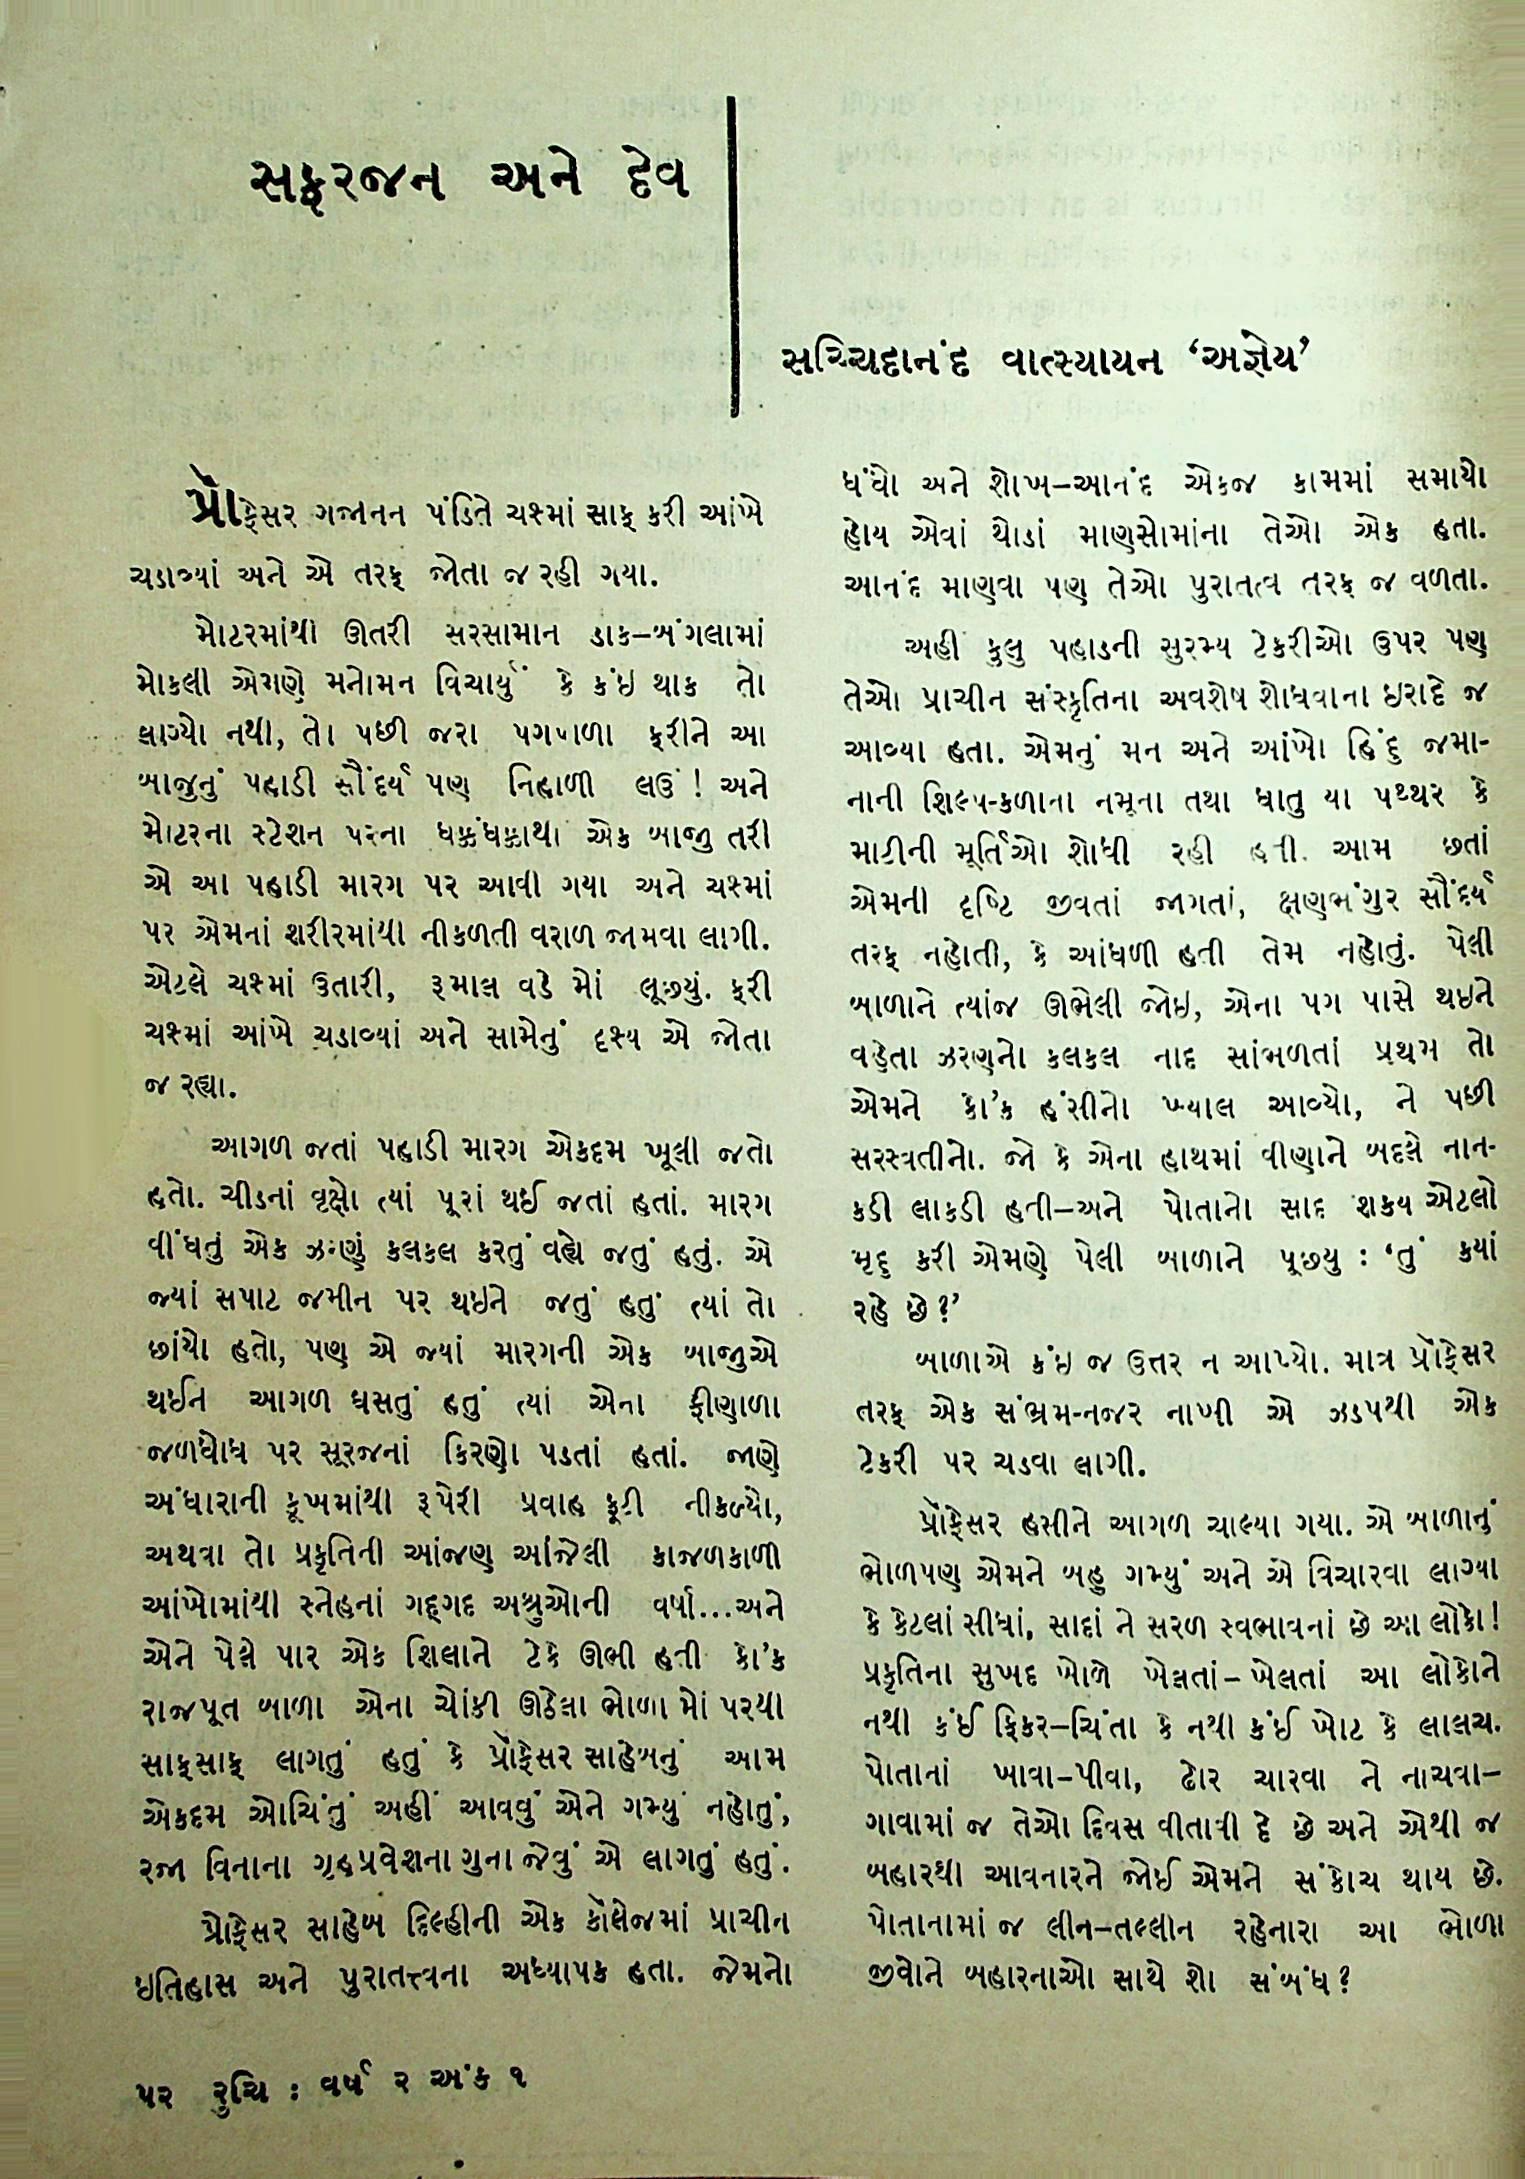 સફરજન અને દેવ
સચ્ચિદાનંદ વાત્સ્યાયન ‘અજ્ઞેય’
પ્રૉફેસર ગજાનન પંડિતે ચશ્માં સાફ કરી આંખે
ચડાવ્યાં અને એ તરફ જોતા જ રહી ગયા.
મોટરમાંથી ઊતરી સરસામાન ડાક–બંગલામાં
મોકલી એમણે મનોમન વિચાર્યું કે કંઇ થાક તો
લાગ્યો નથી, તો પછી જરા પગપાળા ફરીને આ
બાજુનું પહાડી સૌંદર્ય પણ નિહાળી લઉં ! અને
મોટરના સ્ટેશન પરના ધક્કંધક્કાથી એક બાજુ તરી
એ આ પહાડી મારગ પર આવી ગયા અને ચશ્માં
પર એમનાં શરીરમાંથી નીકળતી વરાળ જામવા લાગી.
એટલે ચશ્માં ઉતારી, રૂમાલ વડે મોં લૂછ્યું. ફરી
ચશ્માં આંખે ચડાવ્યાં અને સામેનું દૃશ્ય એ જોતા
જ રહ્યા.
આગળ જતાં પહાડી મારગ એકદમ ખૂલી જતો
હતો. ચીડનાં વૃક્ષો ત્યાં પૂરાં થઈ જતાં હતાં. મારગ
વીંધતું એક ઝરણું કલકલ કરતું વહ્યે જતું હતું. એ
જ્યાં સપાટ જમીન પર થઇને જતું હતું ત્યાં તો
છાંયો હતો, પણ એ જ્યાં મારગની એક બાજુએ
થઈને આગળ ધસતું હતું ત્યાં એના ફીણાળા
જળધોધ પર સૂરજનાં કિરણો પડતાં હતાં. જાણે
અંધારાની કૂખમાંથી રૂપેરી પ્રવાહ ફૂટી નીકળ્યો,
અથવા તો પ્રકૃતિની આંજણ આંજેલી કાજળકાળી
આંખોમાંથી સ્નેહનાં ગદ્ગદ અશ્રુઓની વર્ષા...અને
એને પેલે પાર એક શિલાને ટેકે ઊભી હતી કો’ક
રાજપૂત બાળા એના ચોંકી ઊઠેલા ભોળા મોં પરથી
સાફસાફ લાગતું હતું કે પ્રૉફેસર સાહેબનું આમ
એકદમ ઓચિંતું અહીં આવવું એને ગમ્યું નહોતું,
રજા વિનાના ગૃહપ્રવેશના ગુના જેવું એ લાગતું હતું.
પ્રોફેસર સાહેબ દિલ્હીની એક કૉલેજમાં પ્રાચીન
ઇતિહાસ અને પુરાતત્ત્વના અધ્યાપક હતા. જેમનો
ધંધો અને શોખ–આનંદ એકજ કામમાં સમાયો
હોય એવાં થોડાં માણસોમાંના તેઓ એક હતા.
આનંદ માણવા પણ તેઓ પુરાતત્વ તરફ જ વળતા.
અહીં કુલુ પહાડની સુરમ્ય ટેકરીઓ ઉપર પણ
તેઓ પ્રાચીન સંસ્કૃતિના અવશેષ શોધવાના ઇરાદે જ
આવ્યા હતા. એમનું મન અને આંખો હિંદુ જમા-
નાની શિલ્પ-કળાના નમૂના તથા ધાતુ યા પથ્થર કે
માટીની મૂર્તિઓ શોધી રહી હતી. આમ છતાં
એમની દૃષ્ટિ જીવતાં જાગતાં, ક્ષણભંગુર સૌંદર્ય
તરફ નહોતી, કે આંધળી હતી તેમ નહોતું. પેલી
બાળાને ત્યાંજ ઊભેલી જોઇ, એના પગ પાસે થઇને
વહેતા ઝરણનો કલકલ નાદ સાંભળતાં પ્રથમ તો
એમને કો’ક હંસીનો ખ્યાલ આવ્યો, ને પછી
સરસ્વતીનો. જો કે એના હાથમાં વીણાને બદલે નાન-
કડી લાકડી હતી–અને પોતાનો સાદ શક્ય એટલો
મૃદુ કરી એમણે પેલી બાળાને પૂછયુ : ‘તું કયાં
રહે છે?’
બાળાએ કંઇ જ ઉત્તર ન આપ્યો. માત્ર પ્રૉફેસર
તરફ એક સંભ્રમ-નજર નાખી એ ઝડપથી એક
ટેકરી પર ચડવા લાગી.
પ્રૉફેસર હસીને આગળ ચાલ્યા ગયા. એ બાળાનું
ભોળપણ એમને બહુ ગમ્યું અને એ વિચારવા લાગ્યા
કે કેટલાં સીધાં, સાદાં ને સરળ સ્વભાવનાં છે આ લોકો!
પ્રકૃતિના સુખદ ખોળે ખેલતાં–ખેલતાં આ લોકોને
નથી કંઈ ફિકર–ચિંતા કે નથી કંઈ ખોટ કે લાલચ.
પોતાનાં ખાવા–પીવા, ઢોર ચારવા ને નાચવા–
ગાવામાં જ તેઓ દિવસ વીતાવી દે છે અને એથી જ
બહારથી આવનારને જોઈ એમને સંકોચ થાય છે.
પોતાનામાં જ લીન–તલ્લીન રહેનારા આ ભોળા
જીવોને બહારનાઓ સાથે શો સંબંધ?
૫૨ રુચિ : વર્ષ ૨ અંક ૧